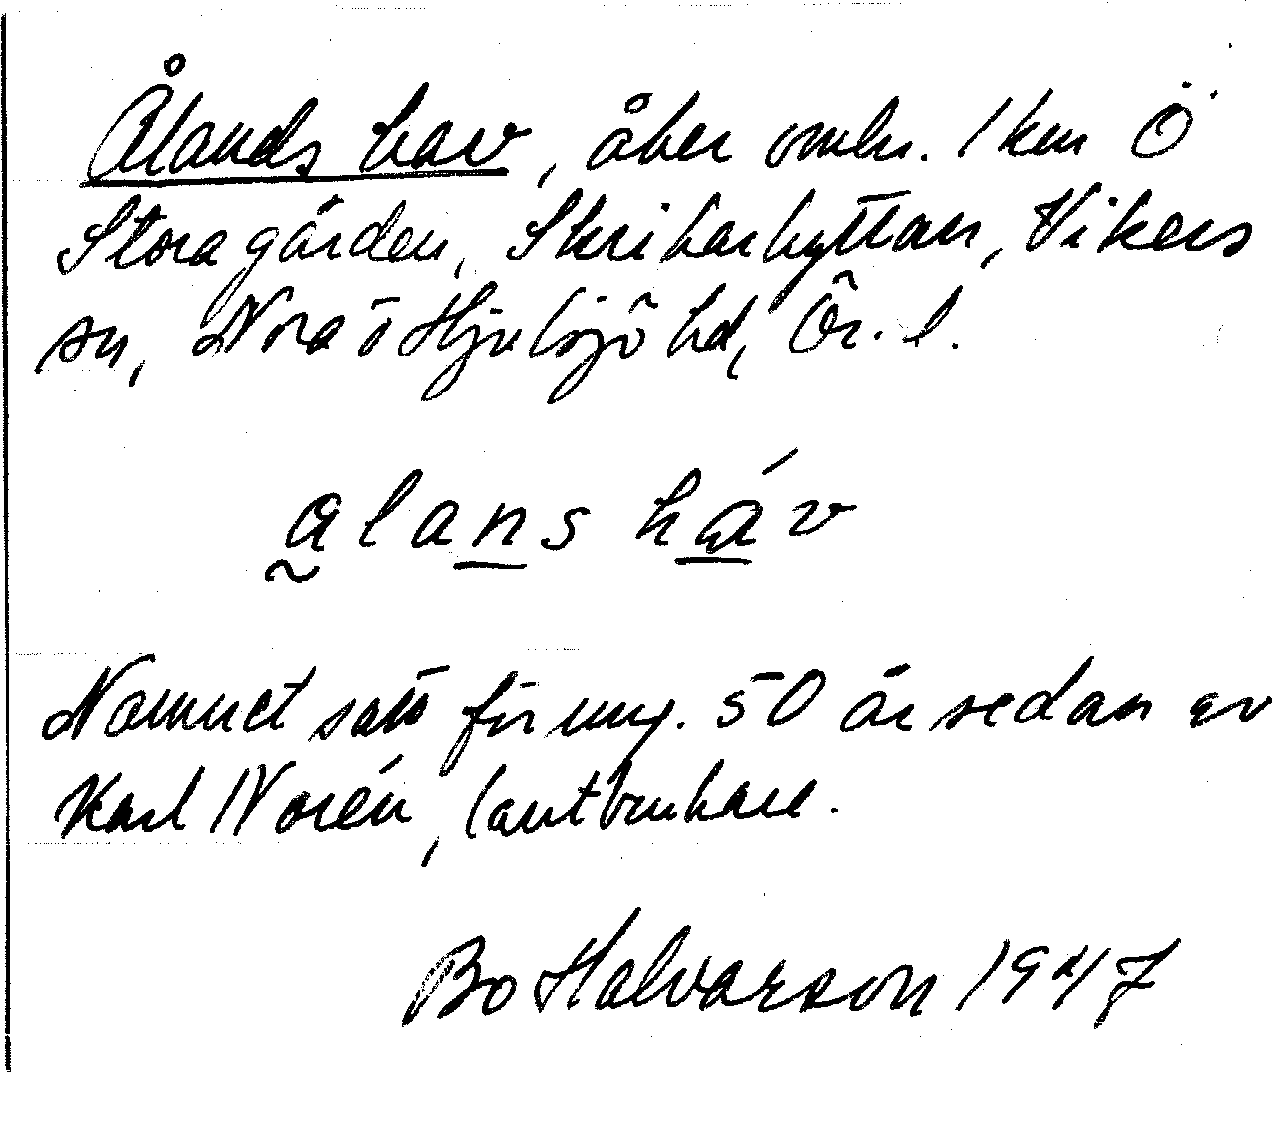 Ålands hav, åker omkr. 1 km Ö
Storagården, Skrikarhyttan, Vikers
sn, Nora ö Hjulsjö hd, Ör. l.
alans háv
Namnet satt för ung. 50 år sedan av
Karl Norén, lantbrukare.
Bo Halvarson 1947